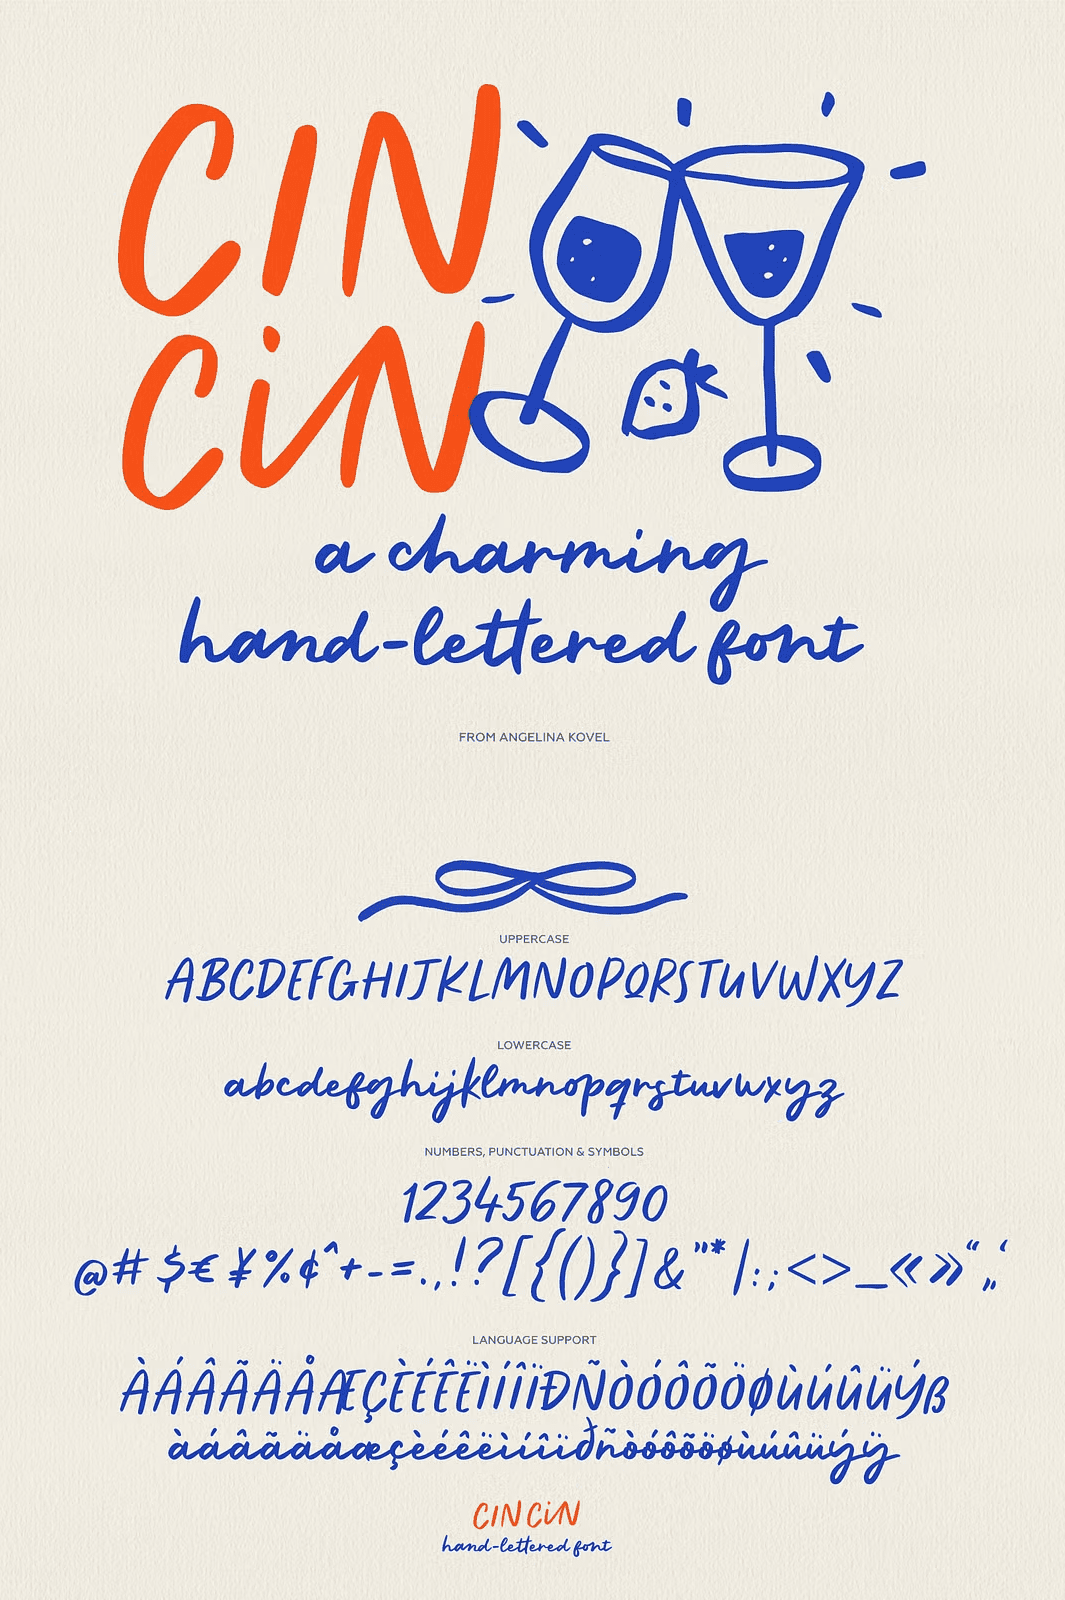 CIN
CiN
a charming
hand-lettered font
FROM ANGELINA KOVEL
UPPERCASE
ABCDEFGHIJKLMNOPQRSTUVWXYZ
LOWERCASE
abcdefghijklmnopqrstuvwxyz
NUMBERS, PUNCTUATION & SYMBOLS
1234567890
@#$€¥%¢^+-=.,!?[{()}]&"*|:;<>_«»“„‘
LANGUAGE SUPPORT
ÀÁÂÃÄÅÆÇÈÉÊËÌÍÎÏÐÑÒÓÔÕÖØÙÚÛÜÝß
àáâãäåæçèéêëìíîïðñòóôõöøùúûüýÿ
CIN CiN
hand-lettered font